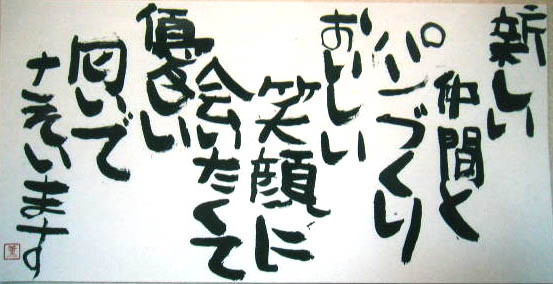 新しい
仲間と
パンづくり
おいしい
笑顔に
会いたくて
優しい
匂いで
さそいます